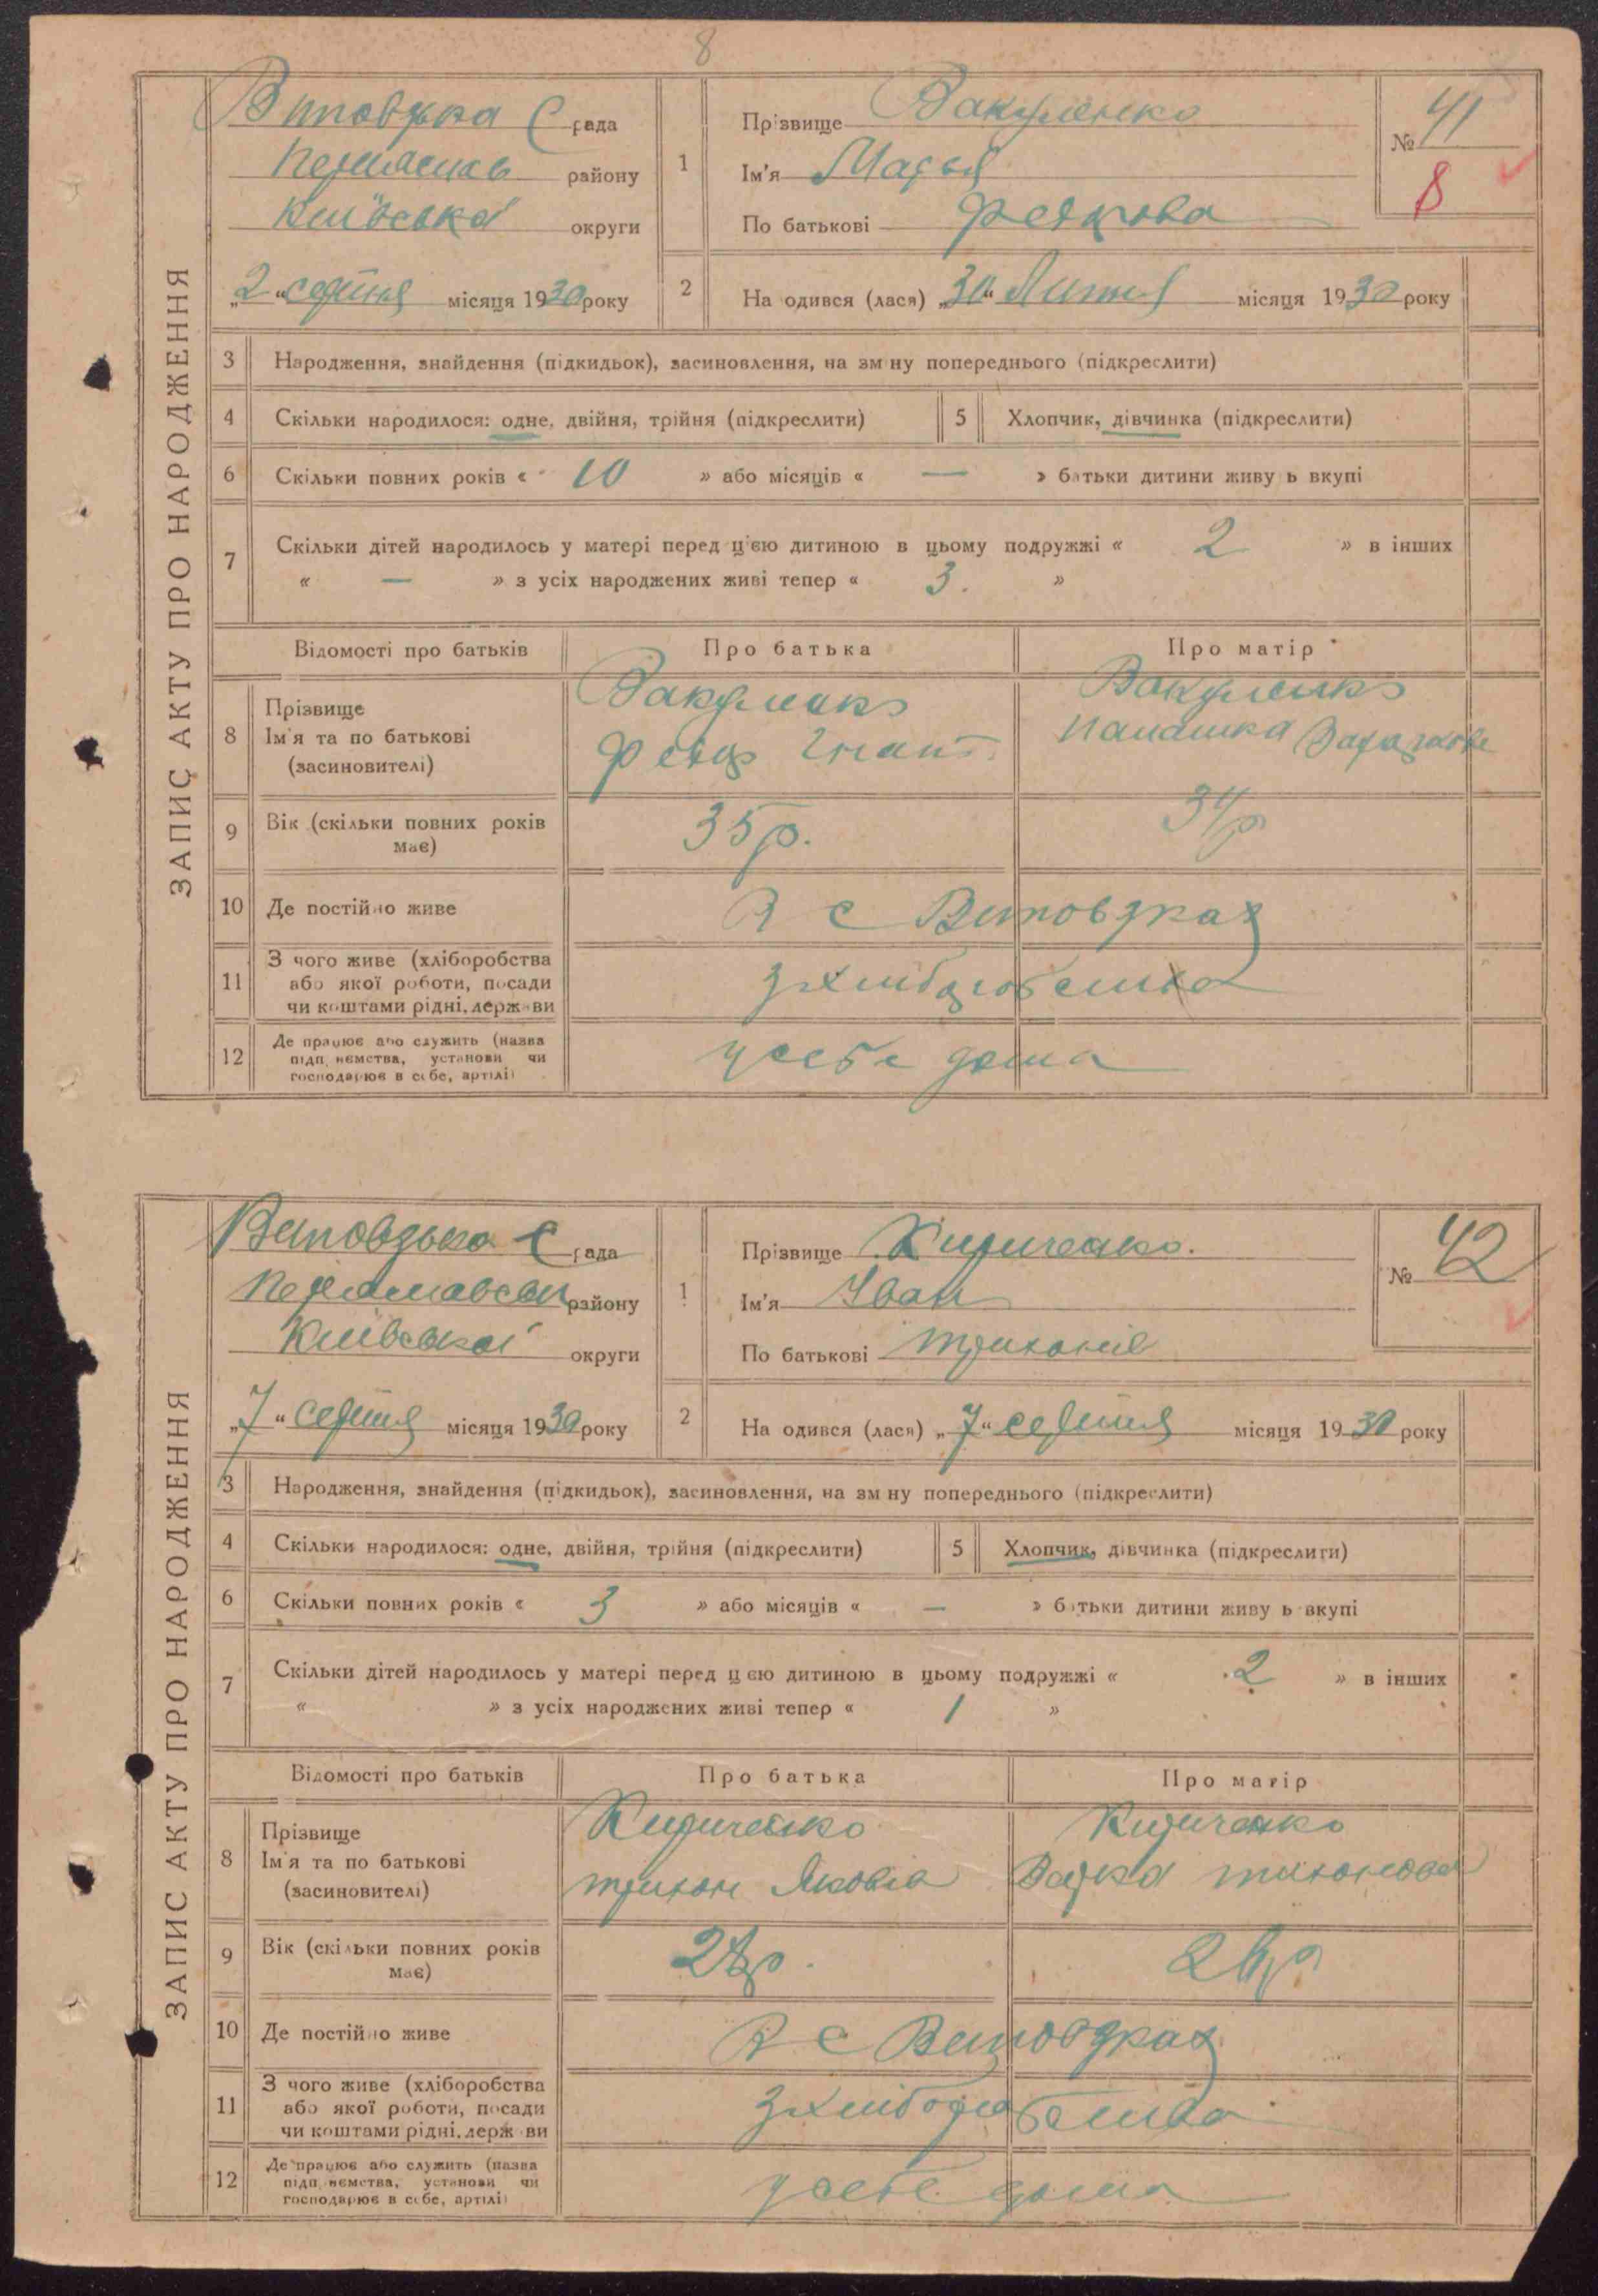 8
ЗАПИС АКТУ ПРО НАРОДЖЕННЯ
рада
району
округи
„2“ серпня місяця 1930 року
1
Прізвище Вакуленко
Ім'я Марья
По батькові
№ 41
8
2
На одився (лася) „30“ Липня місяця 1930 року
3 Народження, знайдення (підкидьок), засиновлення, на зм ну попереднього (підкреслити)
4 Скільки народилося: одне, двійня, трійня (підкреслити) 5 Хлопчик, дівчинка (підкреслити)
6 Скільки повних років « 10 » або місяців « — » батьки дитини живу ь вкупі
7 Скільки дітей народилось у матері перед цією дитиною в цьому подружжі « 2 » в інших
« — » з усіх народжених живі тепер « 3. »
Відомості про батьків Про батька Про матір
8 Прізвище
Ім'я та по батькові
(засиновителі)
Вакуленко
Вакуленко
9 Вік (скільки повних років має) 35 р. 34 р
10 Де постійно живе В с Витовзках
11 З чого живе (хліборобства
або якої роботи, посади
чи коштами рідні, держ ви
зхлиборобства
12 Де працює або служить (назва
підп иємства, установи чи
господарює в себе, артілі)
усебе дома
ЗАПИС АКТУ ПРО НАРОДЖЕННЯ
рада
району
Київської округи
„7“ серпня місяця 1930 року
1
Прізвище Кириченко.
Ім'я Иван
По батькові
№ 42
2
На одився (лася) „7“ серпня місяця 1930 року
3 Народження, знайдення (підкидьок), засиновлення, на зм ну попереднього (підкреслити)
4 Скільки народилося: одне, двійня, трійня (підкреслити) 5 Хлопчик, дівчинка (підкреслити)
6 Скільки повних років « 3 » або місяців « — » батьки дитини живу ь вкупі
7 Скільки дітей народилось у матері перед цією дитиною в цьому подружжі « 2 » в інших
« » з усіх народжених живі тепер « 1 »
Відомості про батьків Про батька Про матір
8 Прізвище
Ім'я та по батькові
(засиновителі)
Кириченко
Кириченко
9 Вік (скільки повних років має)
10 Де постійно живе В с Витовзках
11 З чого живе (хліборобства
або якої роботи, посади
чи коштами рідні, держ ви
зхлиборобства
12 Де працює або служить (назва
підп иємства, установи чи
господарює в себе, артілі)
усебе дома